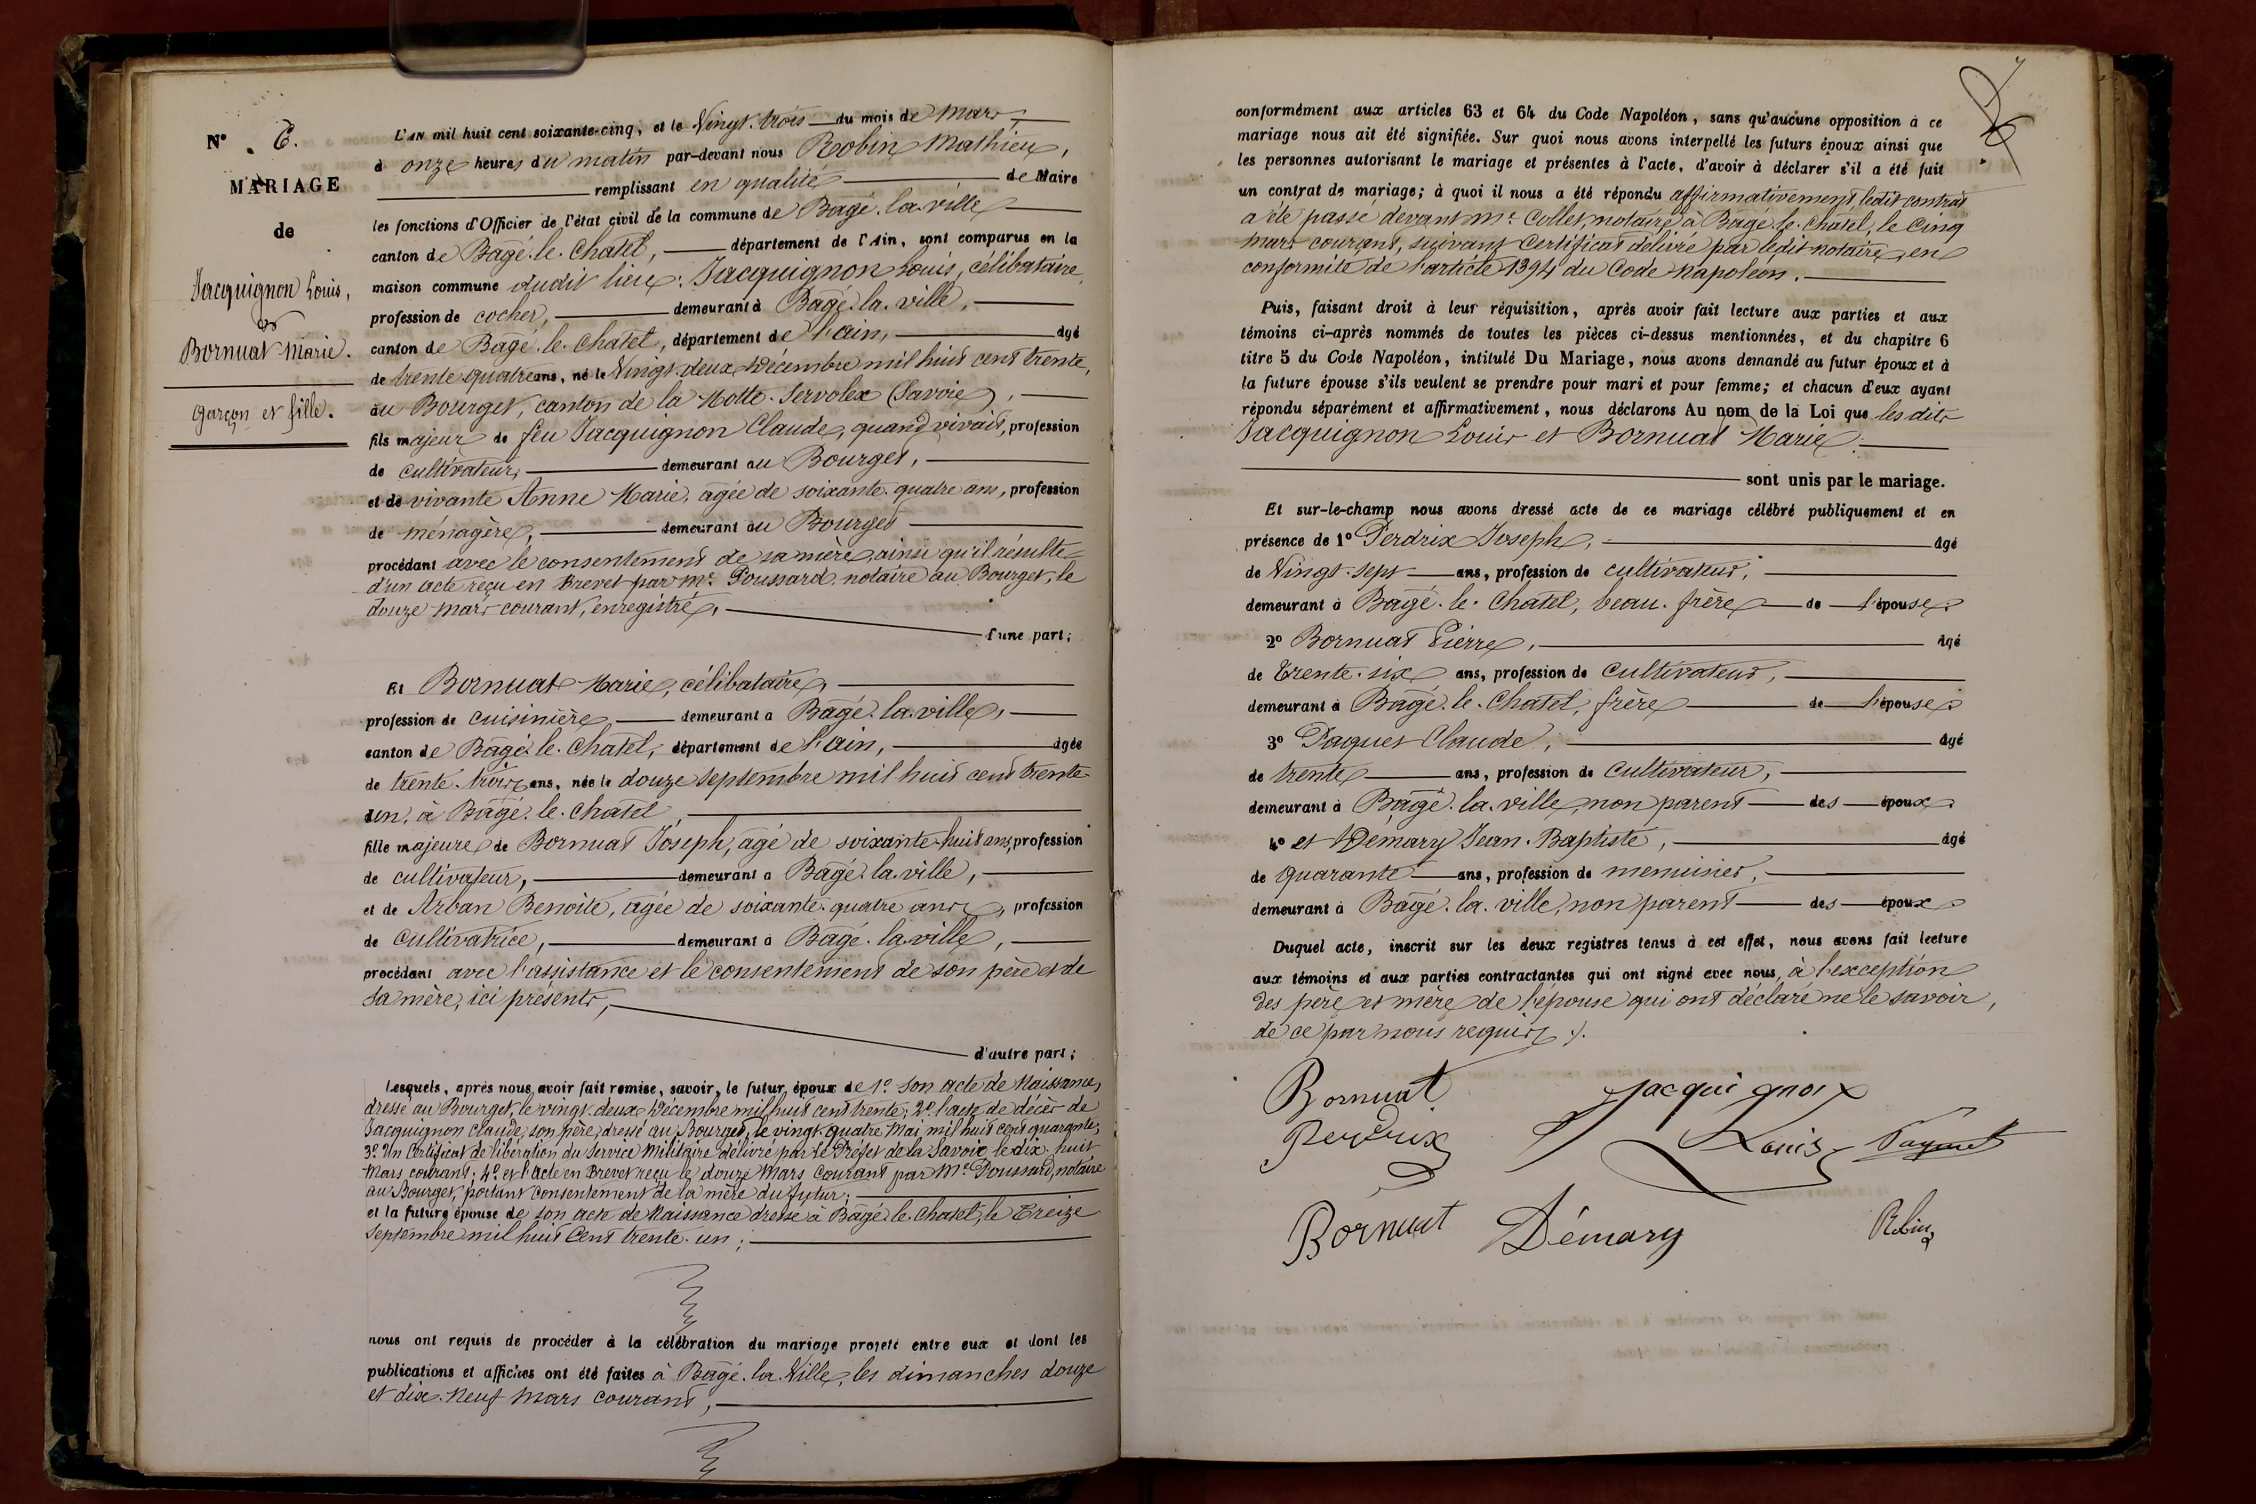 N° 6.
MARIAGE
de
Jacquignon Louis,
&
Bornuat Marie.
garçon et fille.
L'AN mil huit cent soixante-cinq, et le Vingt-trois du mois de Mars,
à onze heures du matin par-devant nous Robin Mathieu,
remplissant en qualité de Maire
les fonctions d'Officier de l'état civil de la commune de Bagé-la-ville
canton de Bagé-le-Chatel, département de l'Ain, sont comparus en la
maison commune dudit lieu: Jacquignon Louis, célibataire,
profession de cocher, demeurant à Bagé-la-ville,
canton de Bagé-le-Chatel, département de l'ain, âgé
de trente quatre ans, né le Vingt-deux Décembre mil huit cent trente,
au Bourget, canton de la Motte-Servolex (Savoie),
fils majeur de feu Jacquignon Claude, quand vivait, profession
de cultivateur, demeurant au Bourget,
et de vivante Anne Marie, agée de soixante-quatre ans, profession
de ménagère, demeurant au Bourget
procédant avec le consentement de sa mère, ainsi qu'il résulte
d'un acte reçu en brevet par Me Poussard notaire au Bourget, le
douze mars courant, enregistré,
d'une part;
Et Bornuat Marie, célibataire,
profession de cuisinière, demeurant à Bagé-la-ville,
canton de Bagé-le-Chatel, département de l'ain, âgée
de trente-trois ans, née le douze septembre mil huit cent trente-
un, à Bagé-le-chatel,
fille majeure de Bornuat Joseph, agé de soixante-huit ans, profession
de cultivateur, demeurant à Bagé-la-ville,
et de Arban Benoîte, agée de soixante-quatre ans, profession
de cultivatrice, demeurant à Bagé-la-ville,
procédant avec l'assistance et le consentement de son père et de
sa mère, ici présents,
d'autre part;
Lesquels, après nous avoir fait remise, savoir, le futur époux de 1° son acte de Naissance,
dressé au Bourget, le vingt-deux Décembre mil huit cent trente; 2° l'acte de décès de
Jacquignon Claude, son père, dressé au Bourget, le vingt-quatre Mai mil huit cent quarante;
3° Un Certificat de libération du Service Militaire délivré par le Préfet de la Savoie, le dix-huit
Mars courant; 4° et l'acte en Brevet reçu le douze Mars Courant par Me Poussard, notaire
au Bourget, portant consentement de la mère du futur;
et la future épouse de son acte de Naissance dressé à Bagé-le-Chatel, le Treize
Septembre mil huit Cent trente-un;
nous ont requis de procéder à la célébration du mariage projeté entre eux et dont les
publications et affiches ont été faites à Bagé-la-Ville, les dimanches douze
et dix-Neuf Mars courant,
conformément aux articles 63 et 64 du Code Napoléon, sans qu'aucune opposition à ce
mariage nous ait été signifiée. Sur quoi nous avons interpellé les futurs époux ainsi que
les personnes autorisant le mariage et présentes à l'acte, d'avoir à déclarer s'il a été fait
un contrat de mariage; à quoi il nous a été répondu affirmativement, ledit contrat
a été passé devant Me Collet, notaire à Bagé-le-Chatel, le Cinq
Mars courant, suivant Certificat délivré par ledit notaire, en
conformité de l'article 1394 du Code Napoléon.
Puis, faisant droit à leur réquisition, après avoir fait lecture aux parties et aux
témoins ci-après nommés de toutes les pièces ci-dessus mentionnées, et du chapitre 6
titre 5 du Code Napoléon, intitulé Du Mariage, nous avons demandé au futur époux et à
la future épouse s'ils veulent se prendre pour mari et pour femme; et chacun d'eux ayant
répondu séparément et affirmativement, nous déclarons Au nom de la Loi que les dits
Jacquignon Louis et Bornuat Marie
sont unis par le mariage.
Et sur-le-champ nous avons dressé acte de ce mariage célébré publiquement et en
présence de 1° Perdrix Joseph, âgé
de Vingt-sept ans, profession de cultivateur,
demeurant à Bagé-le-Chatel, beau-frère de l'épouse
2° Bornuat Pierre, âgé
de trente-six ans, profession de cultivateur,
demeurant à Bagé-le-Chatel, frère de l'épouse
3° Paquet Claude, âgé
de trente ans, profession de cultivateur,
demeurant à Bagé-la-ville, non parent des époux
4° et Démary Jean-Baptiste, âgé
de quarante ans, profession de menuisier,
demeurant à Bagé-la-ville, non parent des époux
Duquel acte, inscrit sur les deux registres tenus à cet effet, nous avons fait lecture
aux témoins et aux parties contractantes qui ont signé avec nous, à l'exception
des père et mère de l'épouse qui ont déclaré ne le savoir,
de ce par nous requis.
Bornuat Jacquignon
Perdrix Louis Paquet
Bornuat Démary Robin